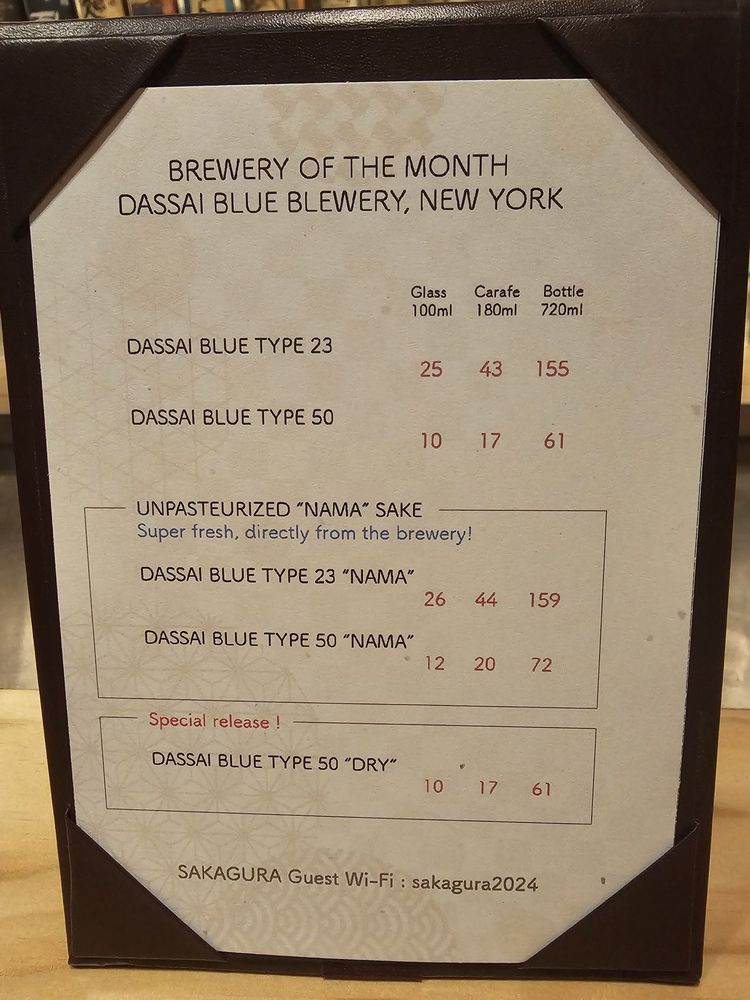 BREWERY OF THE MONTH
DASSAI BLUE BLEWERY, NEW YORK
Glass Carafe Bottle
100ml 180ml 720ml
DASSAI BLUE TYPE 23
25 43 155
DASSAI BLUE TYPE 50
10 17 61
UNPASTEURIZED "NAMA" SAKE
Super fresh, directly from the brewery!
DASSAI BLUE TYPE 23 "NAMA"
26 44 159
DASSAI BLUE TYPE 50 "NAMA"
12 20 72
Special release !
DASSAI BLUE TYPE 50 "DRY"
10 17 61
SAKAGURA Guest Wi-Fi : sakagura2024